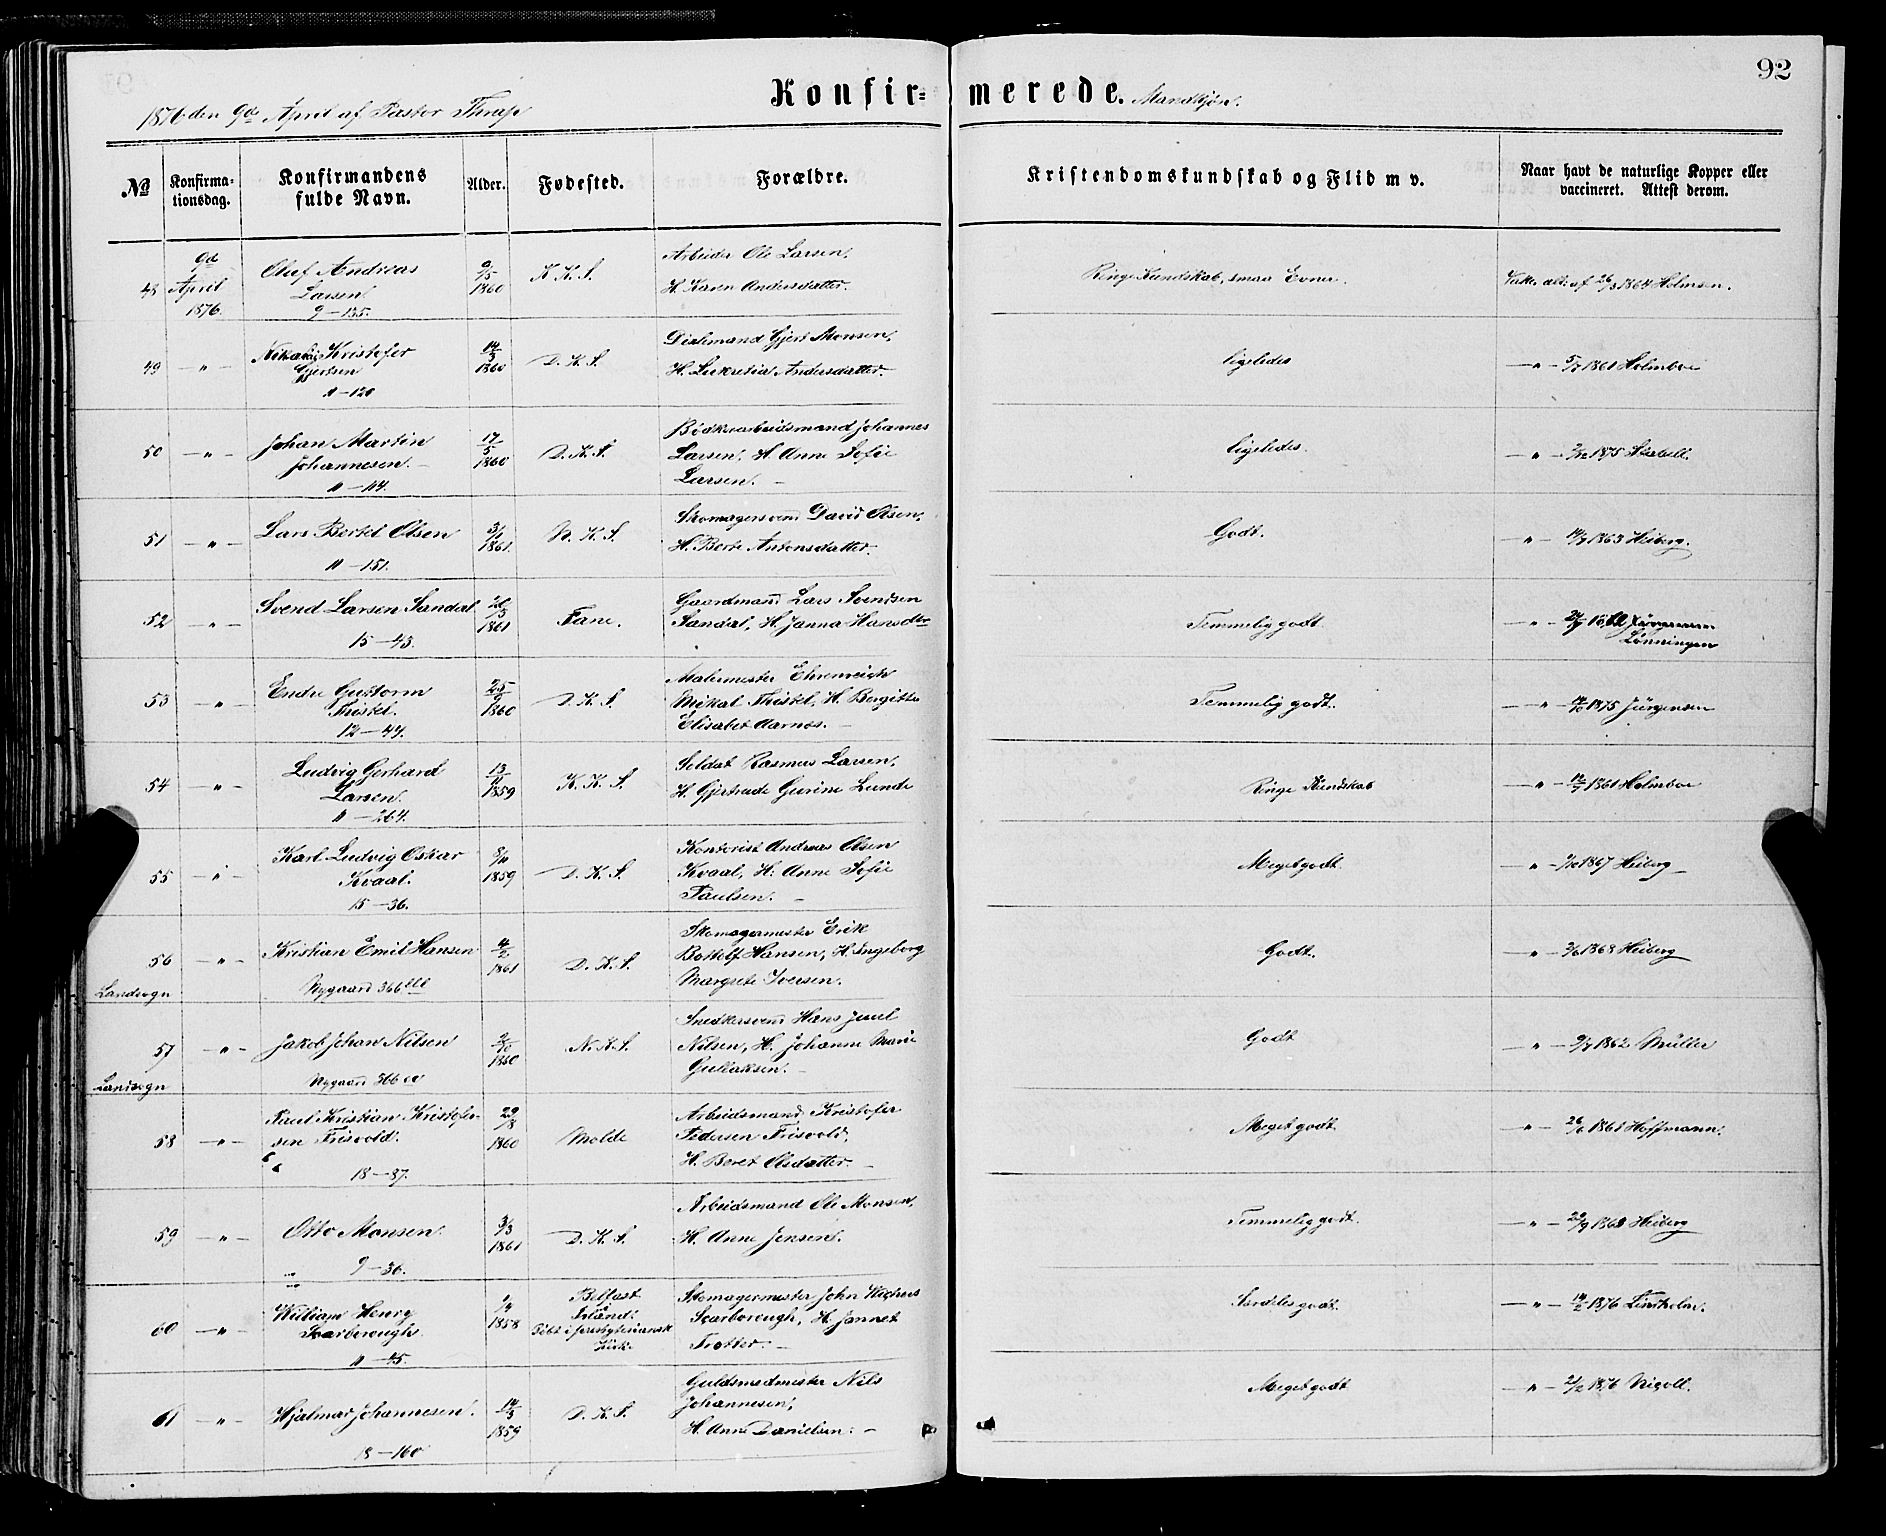 92
Konfir= merede. Mandkjön.
1876 den 9de April af Pastor Thrap
No
Konfirma-
tionsdag.
Konfirmandens
fulde Navn.
Alder.
Fødested.
Forældre.
Kristendomskundskab og Flid m v.
Naar havt de naturlige Kopper eller
vaccineret. Attest derom.
48
9de
April
1876.
Oluf Andreas
Larsen
9 – 135.
1860
K. K. S.
Arbeider Ole Larsen,
H. Karen Andersdatter.
Ringe Kundskab, smaa Evner.
1864 Holmsen.
49 – " –
Nikolai Kristofer
Gjertsen
" – 120
14/3
1860
D. K. S.
Gjert Monsen,
H. Lukretia Andersdatter.
ligeledes
– " – 5/7 1861 Holmboe
50 – " –
Johan Martin
Johannesen. –
" – 114.
17/5
1860
D. K. S.
Bödkerarbeidsmand Johannes
Larsen, H. Anne Sofie
Larsen. –
ligeledes.
– " – 1875
51 – " –
Lars Bertel Olsen
" – 151.
3/1
1861.
N. K. S.
Skomagersvend David Olsen,
H. Berte Antonsdatter.
Godt.
– " – 14/9 1863 Heiberg.
52 – " –
Svend Larsen Sandal
15 – 43.
1861
Fane.
Gaardmand Lars Svendsen
Sandal, H. Janna Hansdtr
Temmelig godt
– " –
Lönningen
53 – " –
Endre Guttorm
Thistel.
12 – 44.
25/9
1860
D. K. S.
Malermester Ehrenreich
Mikal Thistel, H. Bergitte
Elisabet Aarnes. –
Temmelig godt.
– " – 1875 Jürgensen
54 – " –
Ludvig Gerhard
Larsen.
" – 264.
13/11
1859
K. K. S.
Soldat Rasmus Larsen,
H. Gjertrude Gurine Lunde
Ringe Kundskab
– " – 12/7 1861 Holmboe
55 – " –
Karl Ludvig Oskar
Kvaal.
15 – 36.
8/11
1859
D. K. S.
Kontorist Andreas Olsen
Kvaal, H. Anne Sofie
Paulsen. –
Meget godt.
– " – 1867 Heiberg
56 – " –
Landsogn
Kristian Emil Hansen
Nygaard 366
4/2
1861
D. K. S.
Skomagermester Erik
Bottolf Hansen, H. Ingeborg
Margrete Iversen.
Godt.
– " – 1868 Heiberg
57 – " –
Landsogn
Jakob Johan Nilsen
Nygaard 366
1860
N. K. S.
Snedkersvend Hans Juul
Nilsen, H. Johanne Marie
Gullaksen. –
Godt
– " – 9/7 1862 Müller
58 – " –
Paul Kristian Kristofer-
sen Frisvold.
18 – 87.
29/8
1860
Molde
Arbeidsmand Kristofer
Pedersen Frisvold,
H. Beret Olsdatter. –
Meget godt
– " – 1861 Hoffmann.
59 – " –
Otto Monsen.
9 – 36.
3/3
1861
D. K. S.
Arbeidsmand Ole Monsen,
H. Anne Jensen.
Temmelig godt.
– " – 29/9 1868 Heiberg
60 – " –
William Henry
Scarborough.
" – 45.
1858
Belfast
Irland:
Döbt i presbyteriansk
Kirke
Skomagermester John
Scarborough, H. Jannet
Trotter. –
Særdeles godt.
– " – 14/2 1876 Lindholm.
61 – " –
Hjalmar Johannesen.
18 – 160
14/3
1859
D. K. S.
Guldsmedmester Nils
Johannesen,
H. Anne Danielsen. –
Meget godt
– " – 2/2 1876 Nicoll.